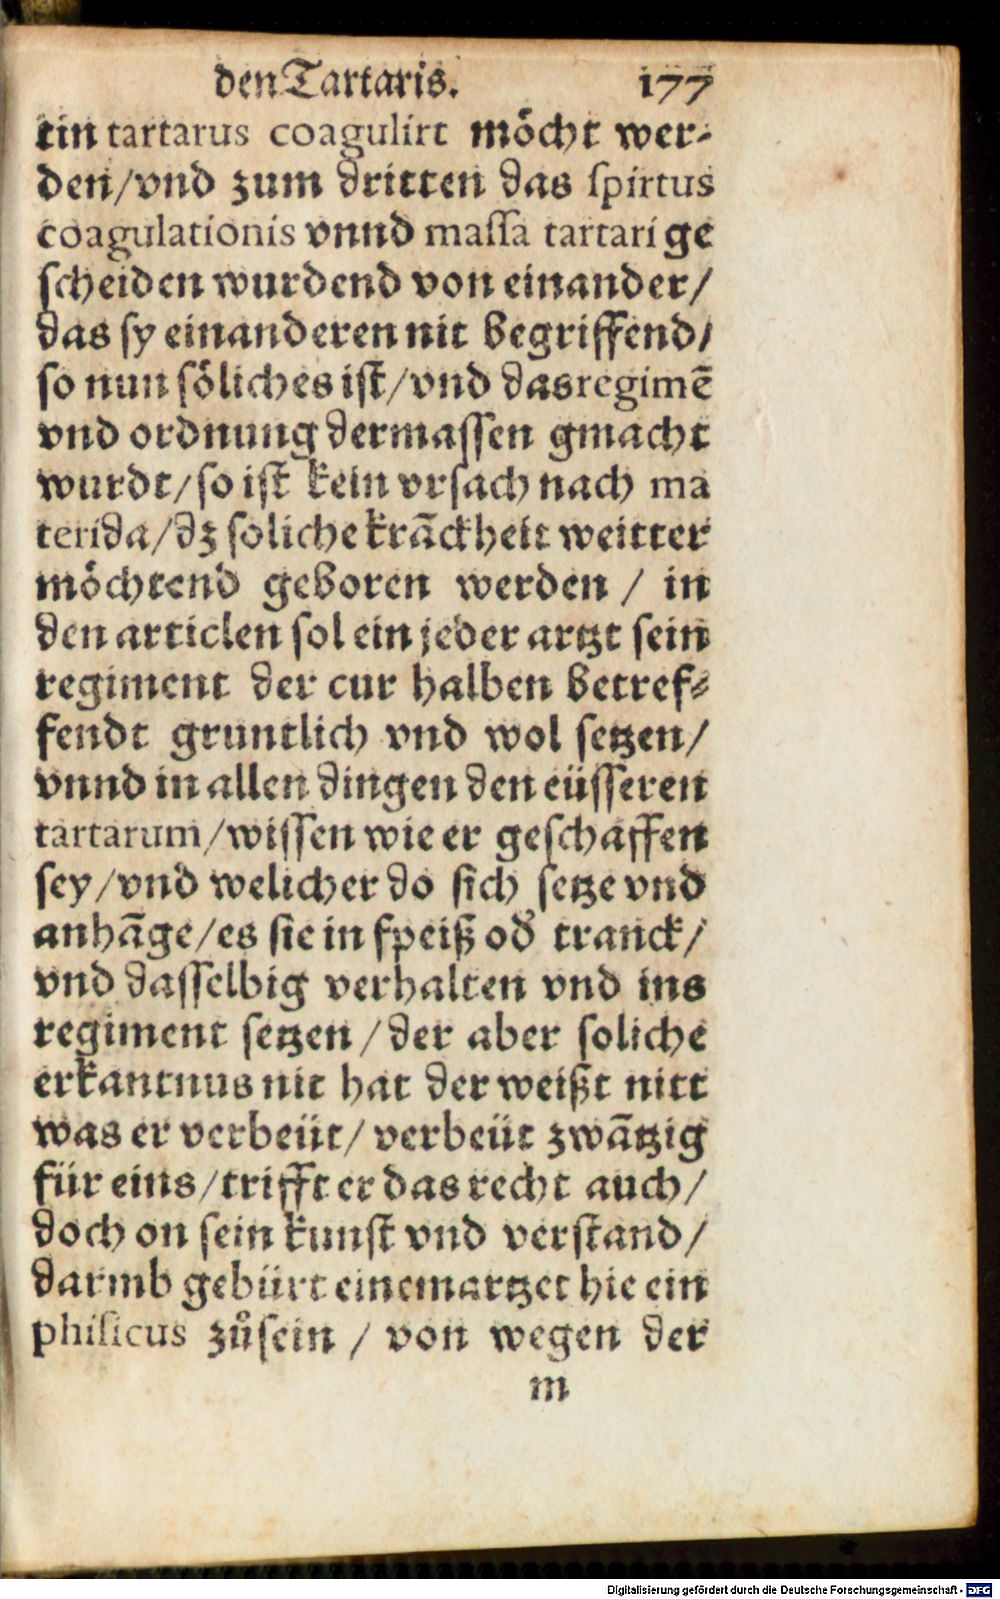 den Tartaris. 177
tin tartarus coagulirt möcht wer-
den/vnd zum dritten das spirtus
coagulationis vnnd massa tartari ge
scheiden wurdend von einander/
das sy einanderen nit begriffend/
so nun söliches ist/vnd das regimē
vnd ordnung dermassen gmacht
wurdt/so ist kein vrsach nach ma
terida/dz soliche krāckheit weitter
möchtend geboren werden / in
den articlen sol ein jeder artzt sein
regiment der cur halben betref-
fendt gruntlich vnd wol setzen/
vnnd in allen dingen den eüsseren
tartarum/wissen wie er geschaffen
sey/vnd welicher do sich setze vnd
anhāge/es sie in speiß od̄ tranck/
vnd dasselbig verhalten vnd ins
regiment setzen/der aber soliche
erkantnus nit hat der weißt nitt
was er verbeüt/verbeüt zwātzig
für eins/trifft er das recht auch/
doch on sein kunst vnd verstand/
darmb gebürt einem artzet hie ein
phisicus zůsein / von wegen der
m
Digitalisierung gefördert durch die Deutsche Forschungsgemeinschaft - DFG